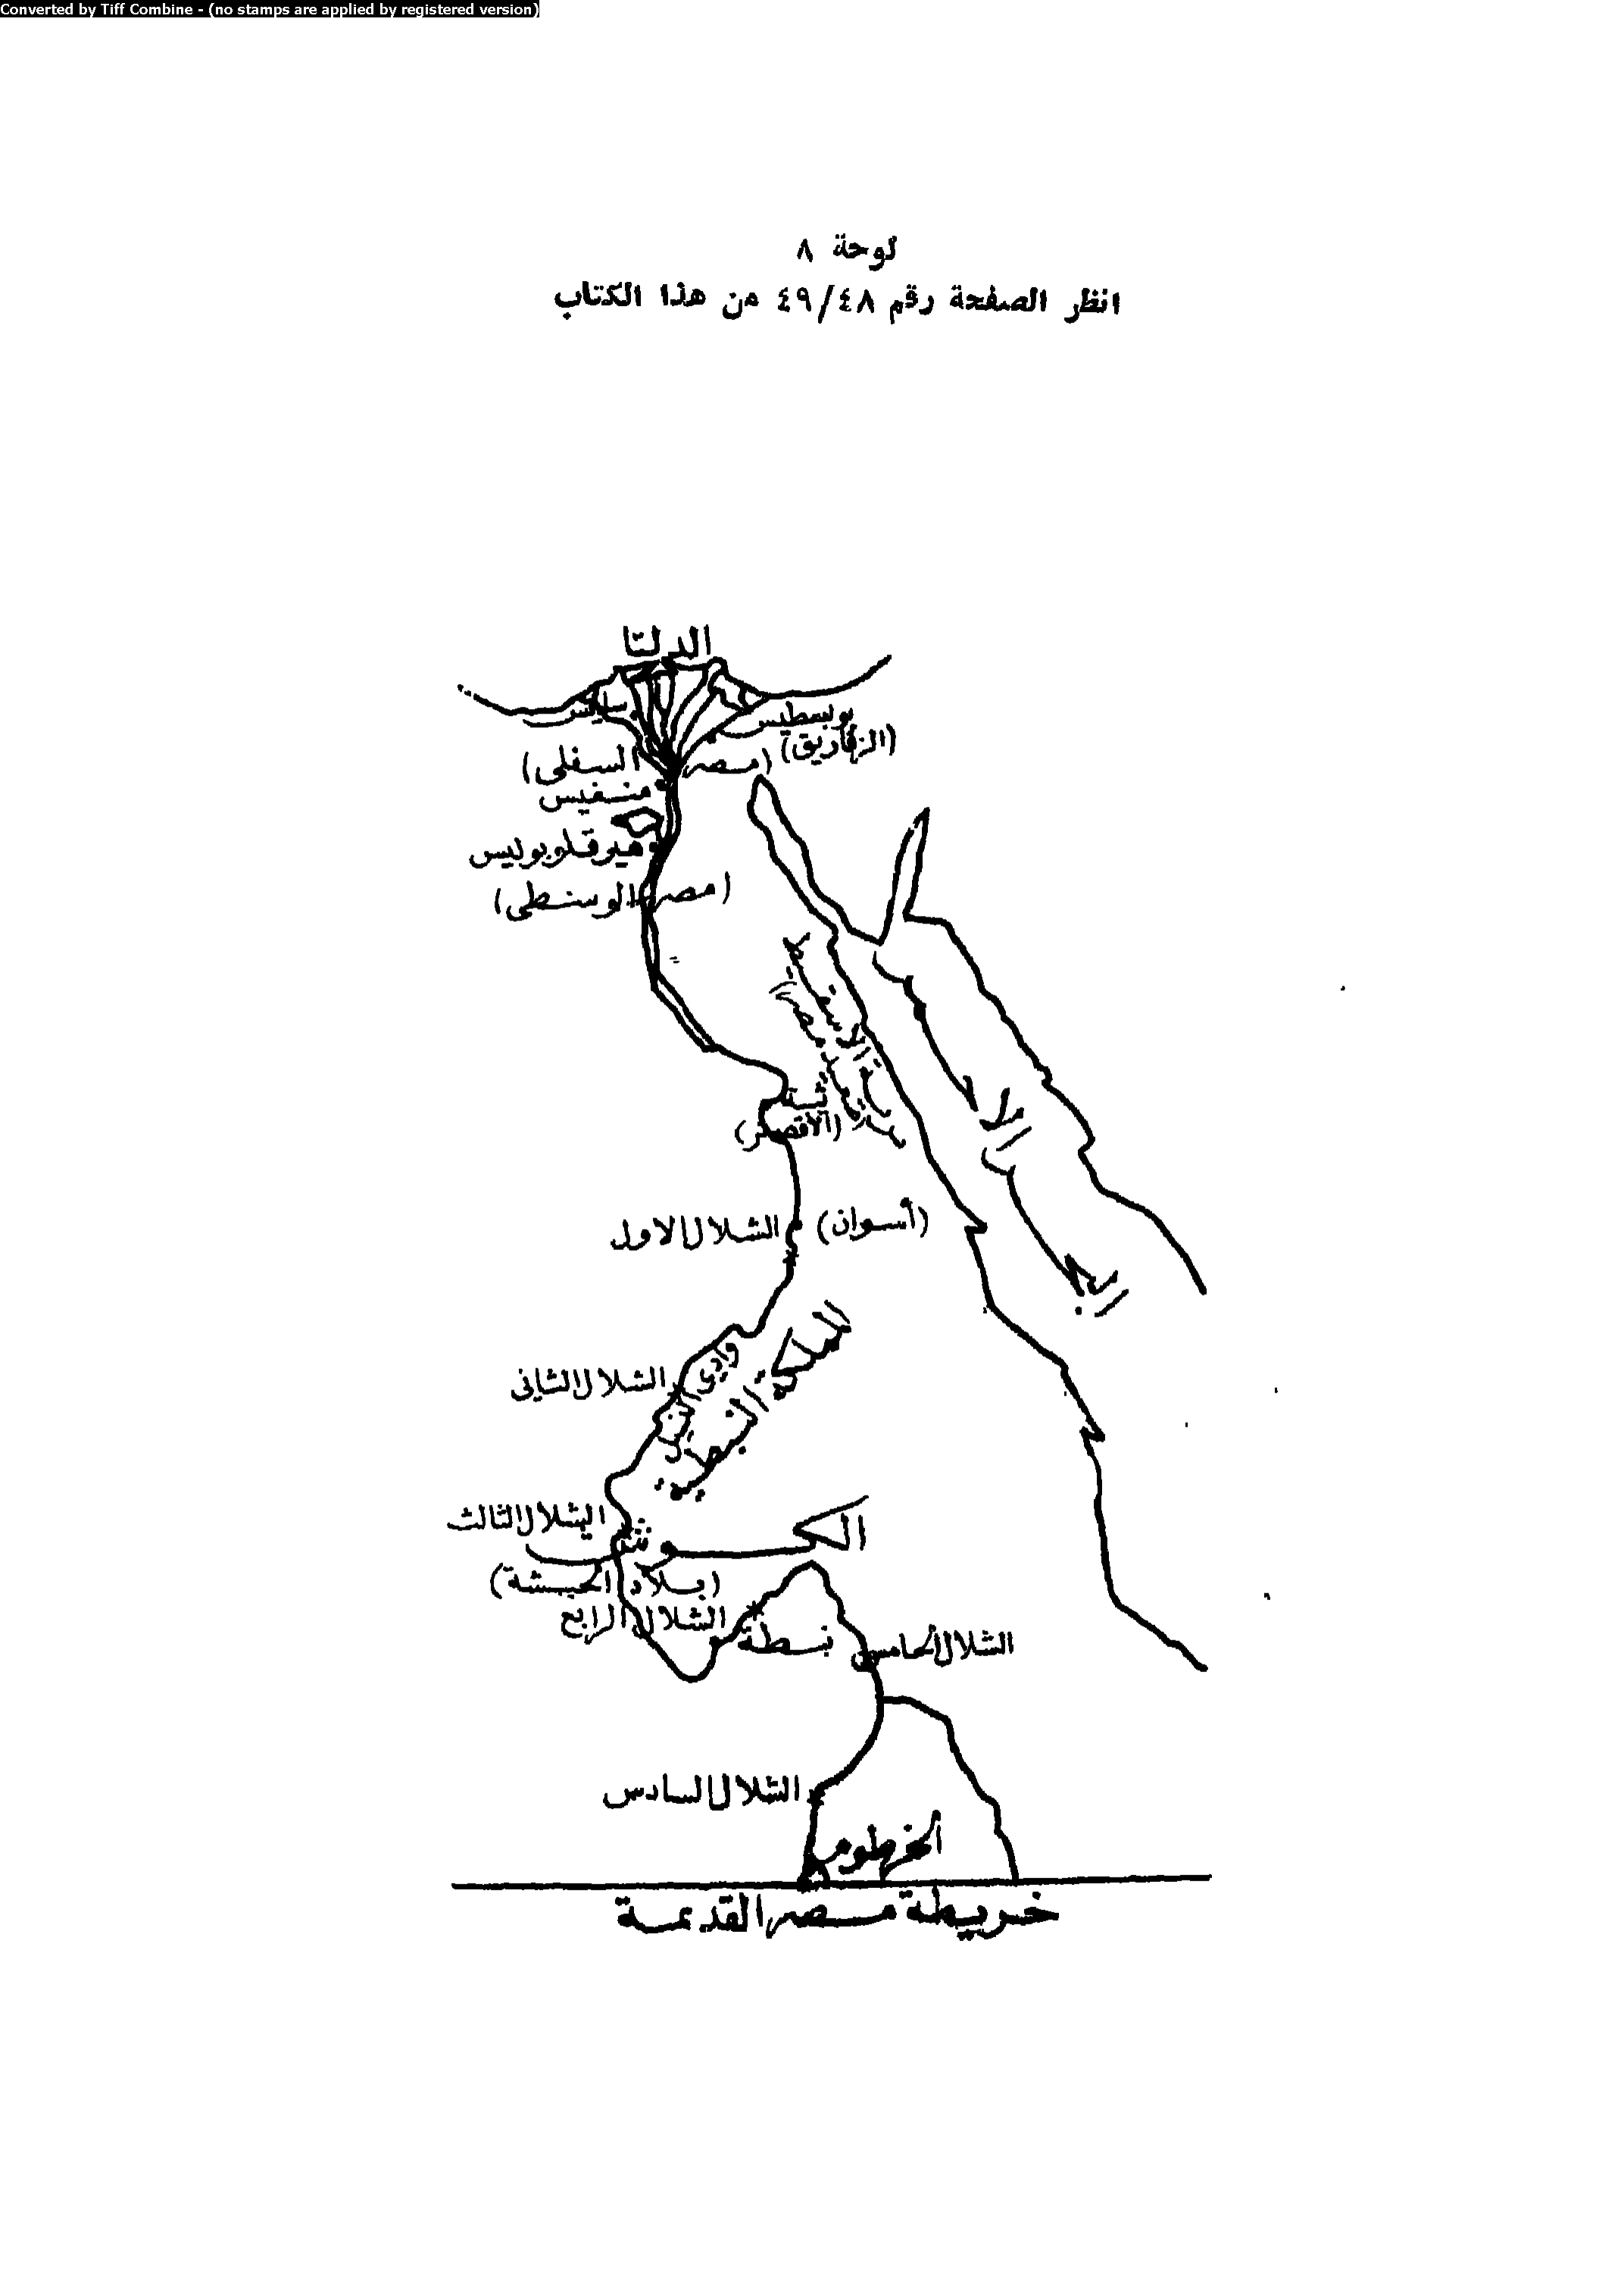 Converted by Tiff Combine - (no stamps are applied by registered version)
لوحة ٨
انظر الصفحة رقم ٤٩/٤٨ من هذا الكتاب
الدلتا
سايس
بوبسطيس
(الزقازيق)
(مصر السفلى)
منفيس
هيرقلوبوليس
(مصر الوسطى)
(الأقصر)
البحر
الشلال الاول
(أسوان)
المملكة
وادي
الشلال الثانى
الشلال الثالث
الكوش
(بلاد الحبشة)
الشلال الرابع
الشلال الخامس
الشلال السادس
الخرطوم
خريطة مصر القديمة